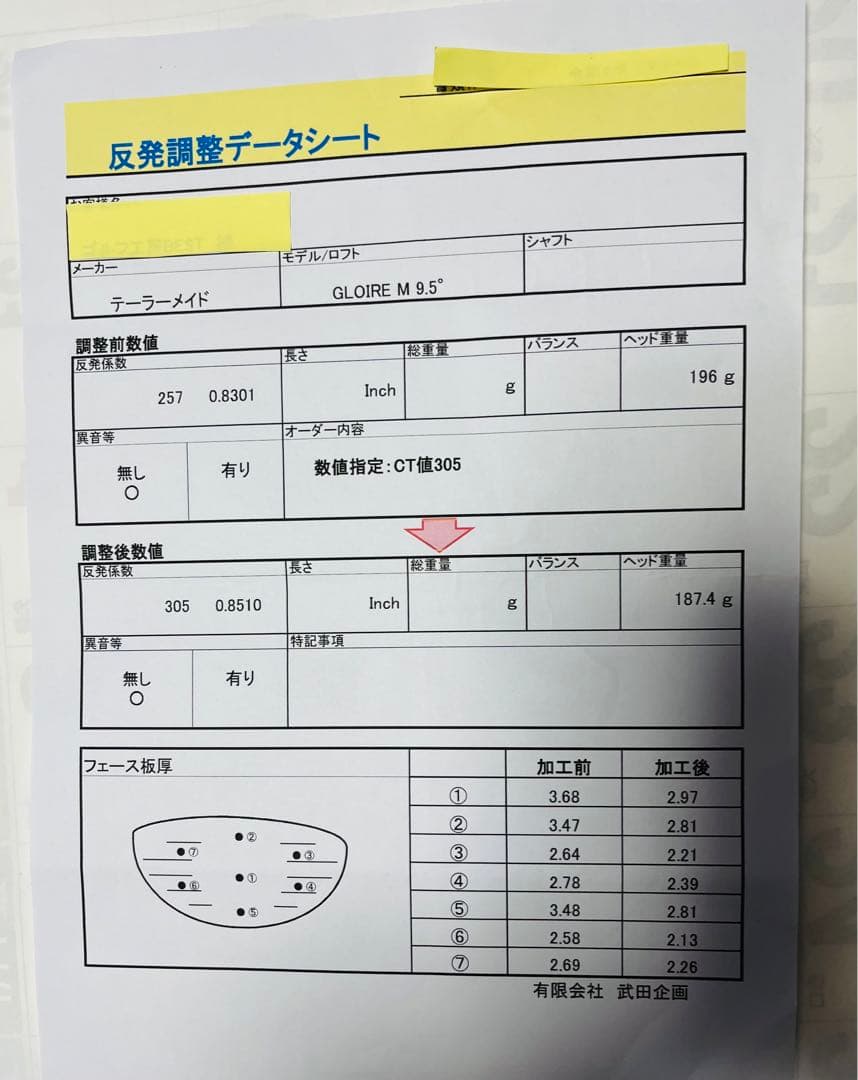 反発調整データシート
お客様名
メーカー
テーラーメイド
モデル/ロフト
GLOIRE M 9.5°
シャフト
調整前数値
反発係数
257 0.8301
長さ
Inch
総重量
g
バランス
ヘッド重量
196 g
異音等
無し
○
有り
オーダー内容
数値指定:CT値305
調整後数値
反発係数
305 0.8510
長さ
Inch
総重量
g
バランス
ヘッド重量
187.4 g
異音等
無し
○
有り
特記事項
フェース板厚
②
⑦
③
①
⑥
④
⑤
加工前 加工後
① 3.68 2.97
② 3.47 2.81
③ 2.64 2.21
④ 2.78 2.39
⑤ 3.48 2.81
⑥ 2.58 2.13
⑦ 2.69 2.26
有限会社 武田企画